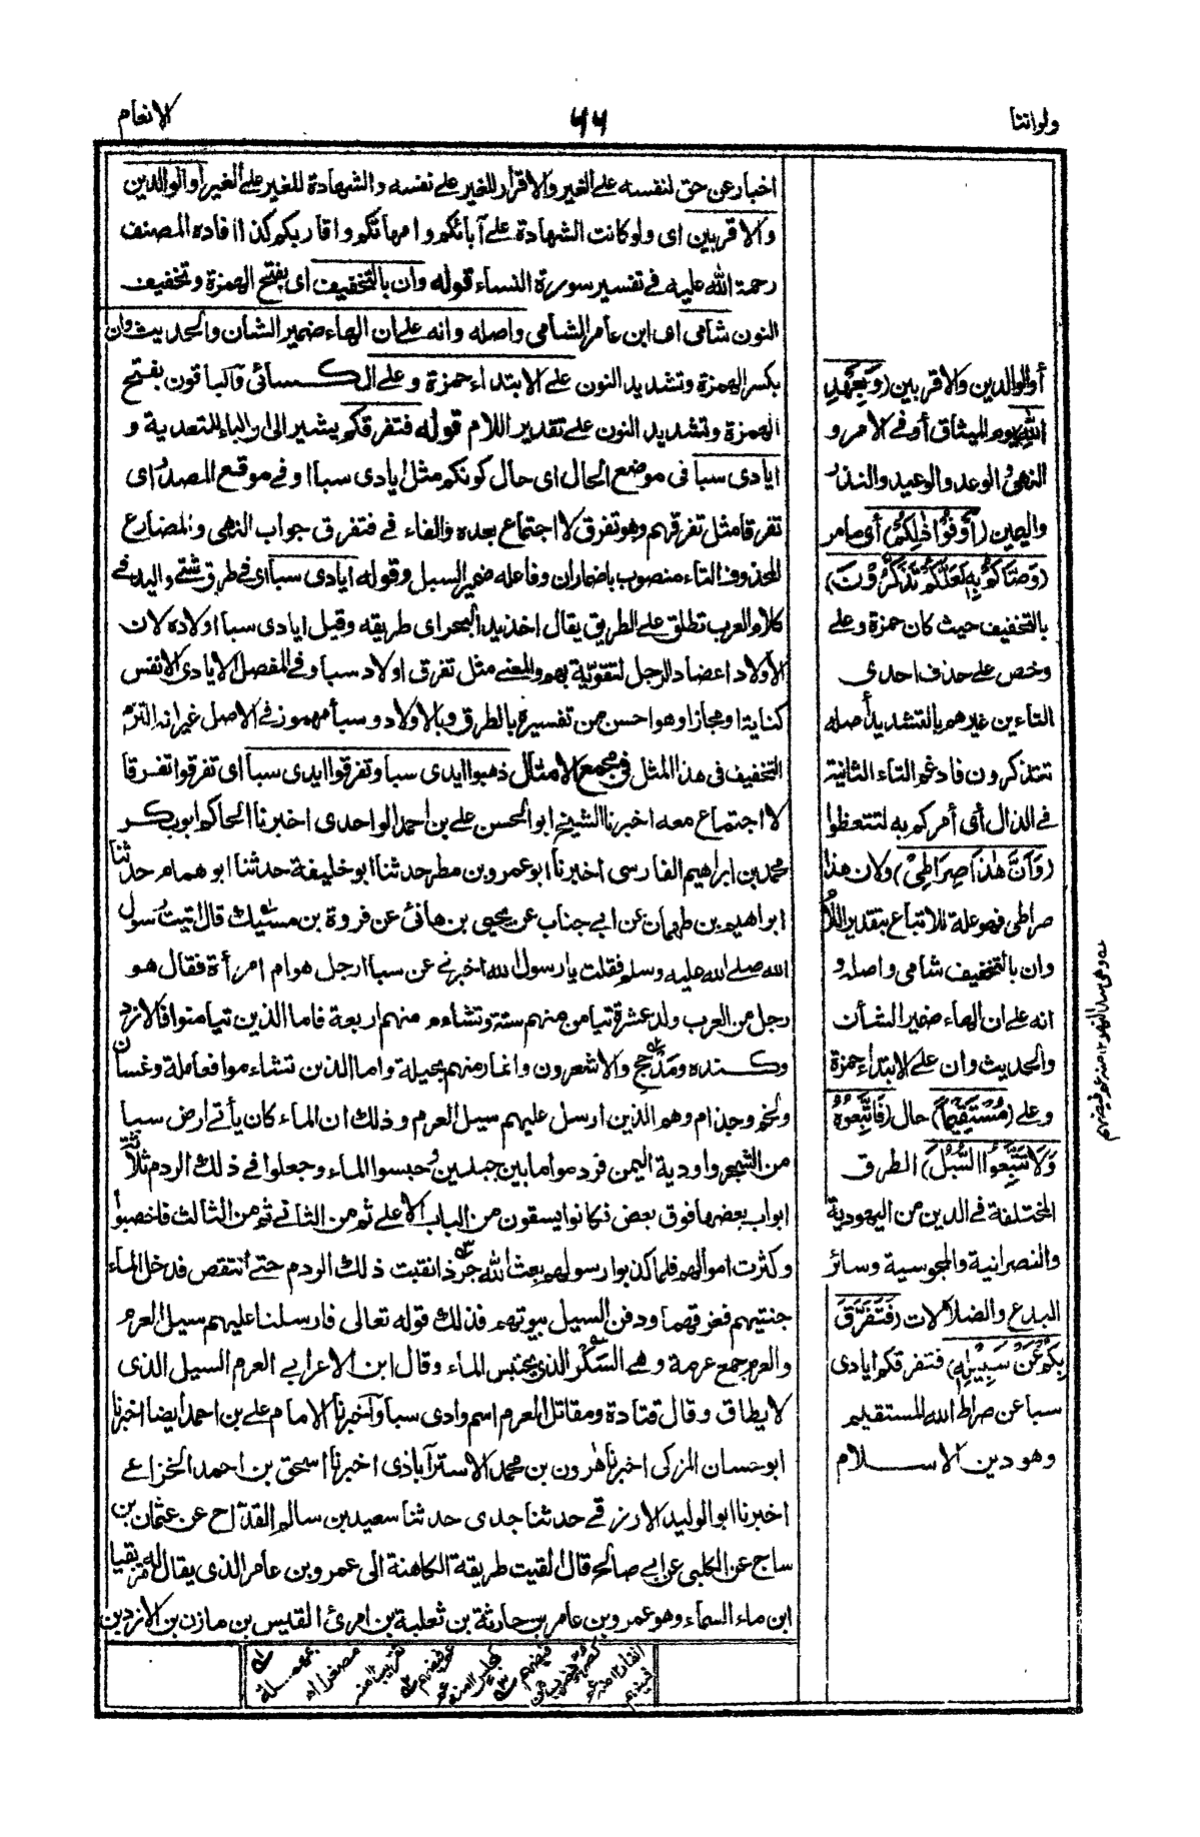 ولواننا
٦٦
الانعام
أو الوالدين والاقربين (وَبِعَهْدِ
اللهِ) يوم الميثاق أو في الامر و
النهي والوعد والوعيد والنذر
واليمين (أَوْفُوْا ذٰلِكُمْ) أى ما مر
(وَصّٰكُمْ بِهٖ لَعَلَّكُمْ تَذَكَّرُوْنَ)
بالتخفيف حيث كان حمزة وعلي
وحفص على حذف احدى
التاءين غيرهم بالتشديد أصله
تتذكرون فادغم التاء الثانية
في الذال أى أمركم به لتتعظوا
(وَاَنَّ هٰذَا صِرَاطِيْ) ولان هذا
صراطي فهو علة للاتباع بتقدير اللام
وان بالتخفيف شامى واصله و
انه على ان الهاء ضمير الشأن
والحديث وان على الابتداء حمزة
وعلي (مُسْتَقِيْمًا) حال (فَاتَّبِعُوْهُ
وَلَا تَتَّبِعُوا السُّبُلَ) الطرق
المختلفة في الدين من اليهودية
والنصرانية والمجوسية وسائر
البدع والضلالات (فَتَفَرَّقَ
بِكُمْ عَنْ سَبِيْلِهٖ) فتفرقكم ايادى
سبا عن صراط الله المستقيم
وهو دين الاسلام
اخبار عن حق لنفسه على الغير والاقرار للغير على نفسه والشهادة للغير على الغير او الوالدين
والاقربين اى ولو كانت الشهادة على آبائكم وامهاتكم واقاربكم كذا افاده المصنف
رحمة الله عليه في تفسير سورة النساء قوله وان بالتخفيف اى بفتح الهمزة وتخفيف
النون شامى اى ابن عامر الشامى واصله وانه على ان الهاء ضمير الشان والحديث وان
بكسر الهمزة وتشديد النون على الابتداء حمزة وعلى الكسائى والباقون بفتح
الهمزة وتشديد النون على تقدير اللام قوله فتفرقكم يشير الى ان الباء للتعدية و
ايادى سبا في موضع الحال اى حال كونكم مثل ايادى سبا او في موقع المصدر اى
تفرقا مثل تفرقهم وهو تفرق لا اجتماع بعده والفاء في فتفرق جواب النهى والمضارع
المحذوف التاء منصوب باضمار ان وفاعله ضمير السبل وقوله ايادى سبا اى في طرق شتى واليد في
كلام العرب تطلق على الطريق يقال اخذ يد البحر اى طريقه وقيل ايادى سبا اولاده لان
الأولاد اعضاد الرجل لتقويته بهم والمعنى مثل تفرق اولاد سبا وفي المفصل الايادى الانفس
كناية او مجازا وهو احسن من تفسيره بالطرق وبالاولاد وسبأ مهموز في الاصل غير انه التزم
التخفيف في هذا المثل في مجمع الامثال ذهبوا ايدى سبا وتفرقوا ايدى سبا اى تفرقوا تفرقا
لا اجتماع معه اخبرنا الشيخ ابو الحسن على بن احمد الواحدى اخبرنا الحاكم ابو بكر
محمد بن ابراهيم الفارسى اخبرنا ابو عمرو بن مطر حدثنا ابو خليفة حدثنا ابو همام حدثنا
ابراهيم بن طهمان عن ابى جناب عن يحيى بن هانئ عن فروة بن مسيك قال اتيت رسول
الله صلى الله عليه وسلم فقلت يا رسول الله اخبرنى عن سبا ارجل هو ام امرأة فقال هو
رجل من العرب ولد عشرة تيامن منهم ستة وتشاءم منهم اربعة فاما الذين تيامنوا فالازد
وكنده ومذحج والاشعرون وانمار منهم بجيلة واما الذين تشاءموا فعاملة وغسان
ولخم وجذام وهم الذين ارسل عليهم سيل العرم وذلك ان الماء كان يأتى ارض سبا
من الشجر واودية اليمن فردموا ما بين جبلين وحبسوا الماء وجعلوا في ذلك الردم ثلاثة
ابواب بعضها فوق بعض فكانوا يسقون من الباب الاعلى ثم من الثانى ثم من الثالث فاخصبوا
وكثرت اموالهم فلما كذبوا رسولهم بعث الله جرذا نقبت ذلك الردم حتى انتقض فدخل الماء
جنتيهم فغرقهما ودفن السيل بيوتهم فذلك قوله تعالى فارسلنا عليهم سيل العرم
والعرم جمع عرمة وهى السكر الذى يحتبس الماء وقال ابن الاعرابى العرم السيل الذى
لا يطاق وقال قتادة ومقاتل العرم اسم وادى سبا وآخبرنا الامام على بن احمد ايضا اخبرنا
ابو حسان المزكى اخبرنا هٰرون بن محمد الاسترآباذى اخبرنا اسحق بن احمد الخزاعى
اخبرنا ابو الوليد الازرقى حدثنا جدى حدثنا سعيد بن سالم القداح عن عثمان بن
ساج عن الكلبى عن ابى صالح قال القيت طريقة الكاهنة الى عمرو بن عامر الذى يقال له مزيقيا
ابن ماء السماء وهو عمرو بن عامر بن حارثة بن ثعلبة بن امرئ القيس بن مازن بن الازد بن